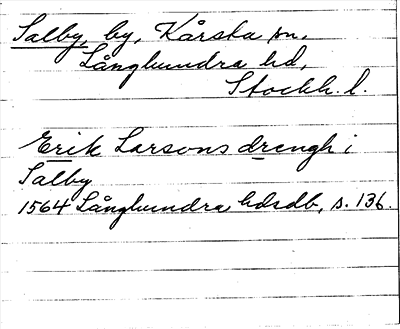 Salby, by, Kårsta sn,
Långhundra hd,
Stockh. l.
Erik Larsons drengh i
Salby
1564 Långhundra hdsdb, s. 136.